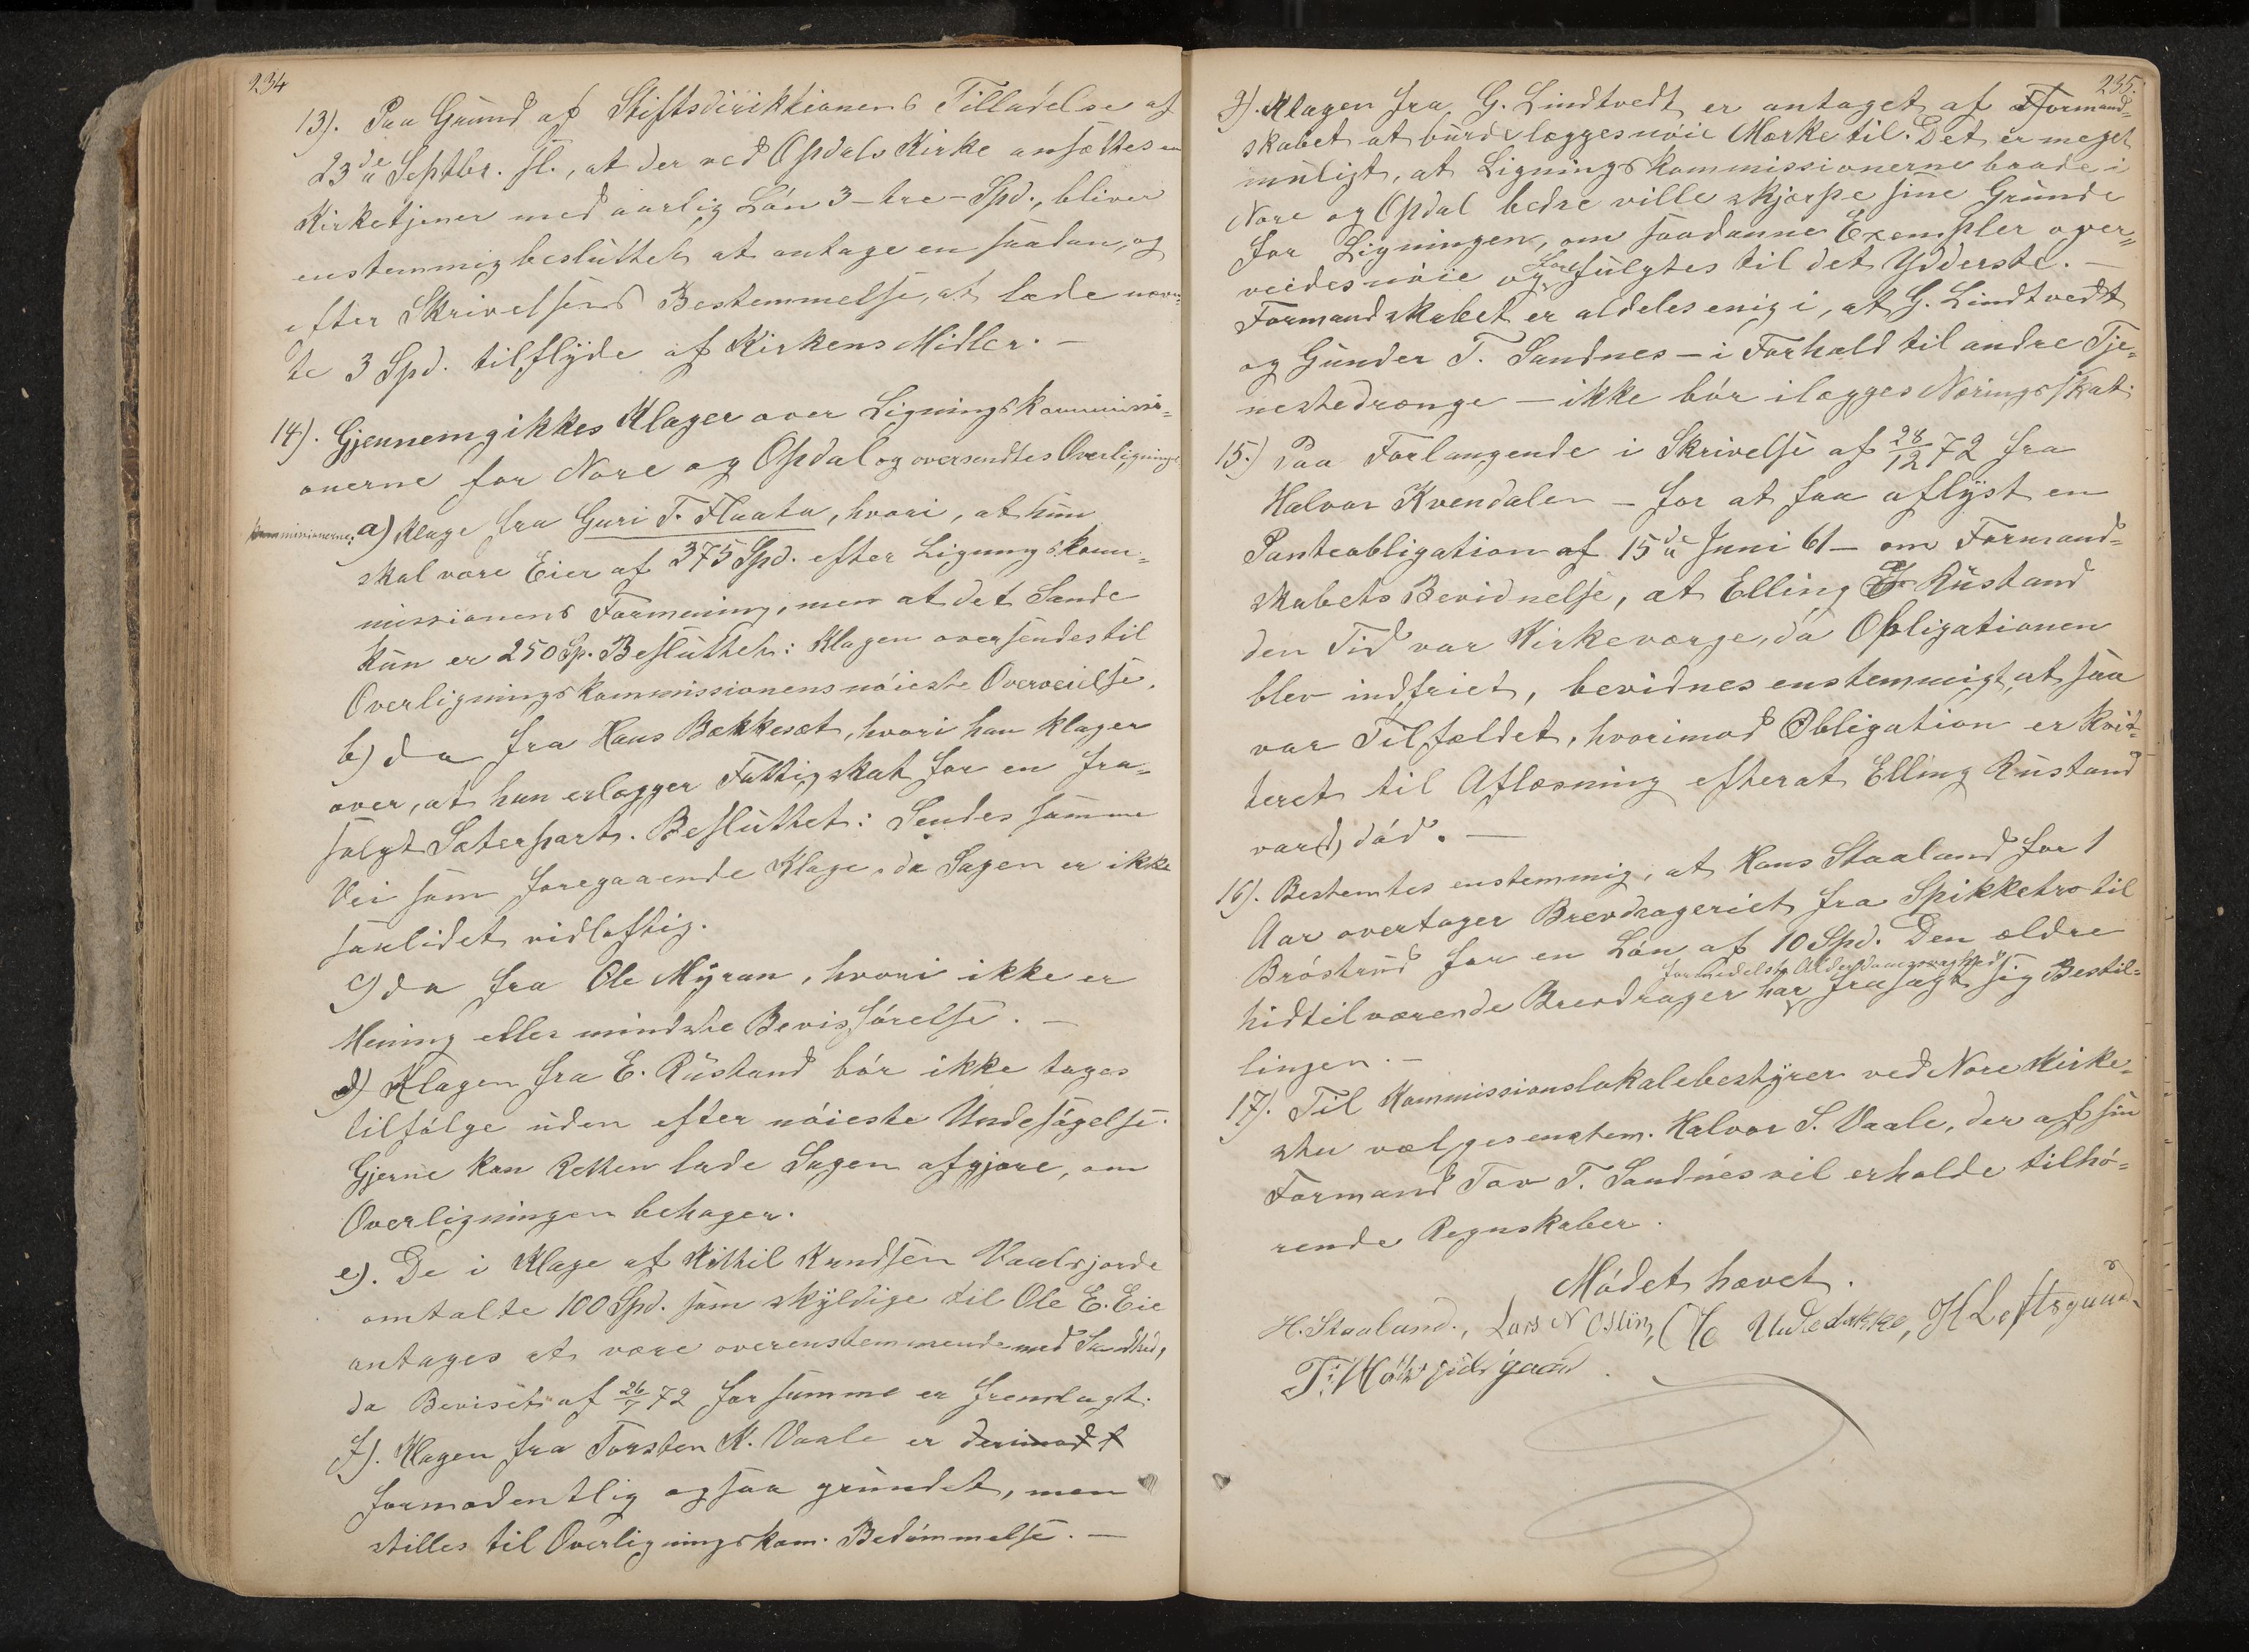 234
13). Paa Grund af Stiftsdiriktionens Tilladelse af
23de Septbr. fl., at der ved Opdals Kirke ansættes en
Kirketjener med aarlig Lön 3-tre-Spd., bliver
enstemmig besluttet at antage en saadan, og
efter Skrivelsens Bestemmelse, at lade nævn-
te 3 Spd. tilflyde af Kirkens Midler. —
14). Gjennemgikkes Klager over Ligningskommissi-
onerne for Nore og Opdal og oversendtes Overlignings
kommissionerne:
a) Klage fra Guri T. Flaata, hvori, at hun
skal være Eier af 375 Spd. efter Ligningskom-
missionens Formening, men at det Sande
kun er 250 Sp. Besluttet: Klagen oversendes til
Overligningskommissionens nöieste Overveielse.
b) do fra Hans Bækkesæt, hvori han klager
over, at han erlægger Fattigskat for en fra-
solgt Sæterpart. Besluttet: Sendes samme
Vei som foregaaende Klage, da Sagen er ikke
saalidet vidløftig.
c) do fra Ole Myran, hvori ikke er
Mening eller mindste Bevisförelse. —
d) Klagen fra E. Rustand bör ikke tages
tilfölge uden efter nöieste Undesögelse.
Gjerne kan Retten lade Sagen afgjøre, om
Overligningen behager.
e). De i Klage af Kittil Knudsen Vaalsjorde
omtalte 100 Spd. som skyldige til Ole E. Eie
antages at være overenstemmende med Sandhed,
da Beviset af 26/7 72 for samme er fremlagt.
f). Klagen fra Torsten K. Vaale er derimod f
formodentlig ogsaa grundet, men
stilles til Overligningskom. Bedömmelse. —
235.
g). Klagen fra G. Lindtvedt er antaget af Formand-
skabet at burde lægges nöie Mærke til. Det er meget
muligt, at Ligningskommissionerne baade i
Nore og Opdal bedre ville skjærpe sine Grunde
for Ligningen, om saadanne Exempler over-
veides nöie og forfulgtes til det Ydderste. —
Formandskabet er aldeles enig i, at G. Lindtvedt
og Gunder T. Sandnes — i Forhold til andre Tje-
nestedrænge — ikke bör ilægges Næringsskat.
15.) Paa Forlangende i Skrivelse af 28/12 72 fra
Halvor Kvendalen — for at faa aflyst en
Panteobligation af 15de Juni 61 — om Formand-
skabets Bevidnelse, at Elling Rustand
den Tid var Kirkeværge, da Obligationen
blev indfriet, bevidnes enstemmigt, at saa
var Tilfældet, hvorimod Obligation er kvit-
teret til Aflæsning efterat Elling Rustand
var(d) död. —
16). Bestemtes enstemmig, at Hans Staaland for 1
Aar overtager Brevdrageriet fra Spikketro til
Bröstrud for en Lön af 10 Spd. Den ældre
hidtilværende Brevdrager har formedelst Alderdomssvaghed frasagt sig Bestil-
lingen. —
17). Til Kommissionslokalebestyrer ved Nore Kirke-
stu vælges enstem. Halvor S. Vaale, der af sin
Formand Tov T. Sandnes vil erholde tilhö-
rende Regnskaber.
Mödet hævet.
H. Staaland., Lars N Oslin, H Loftsgaard